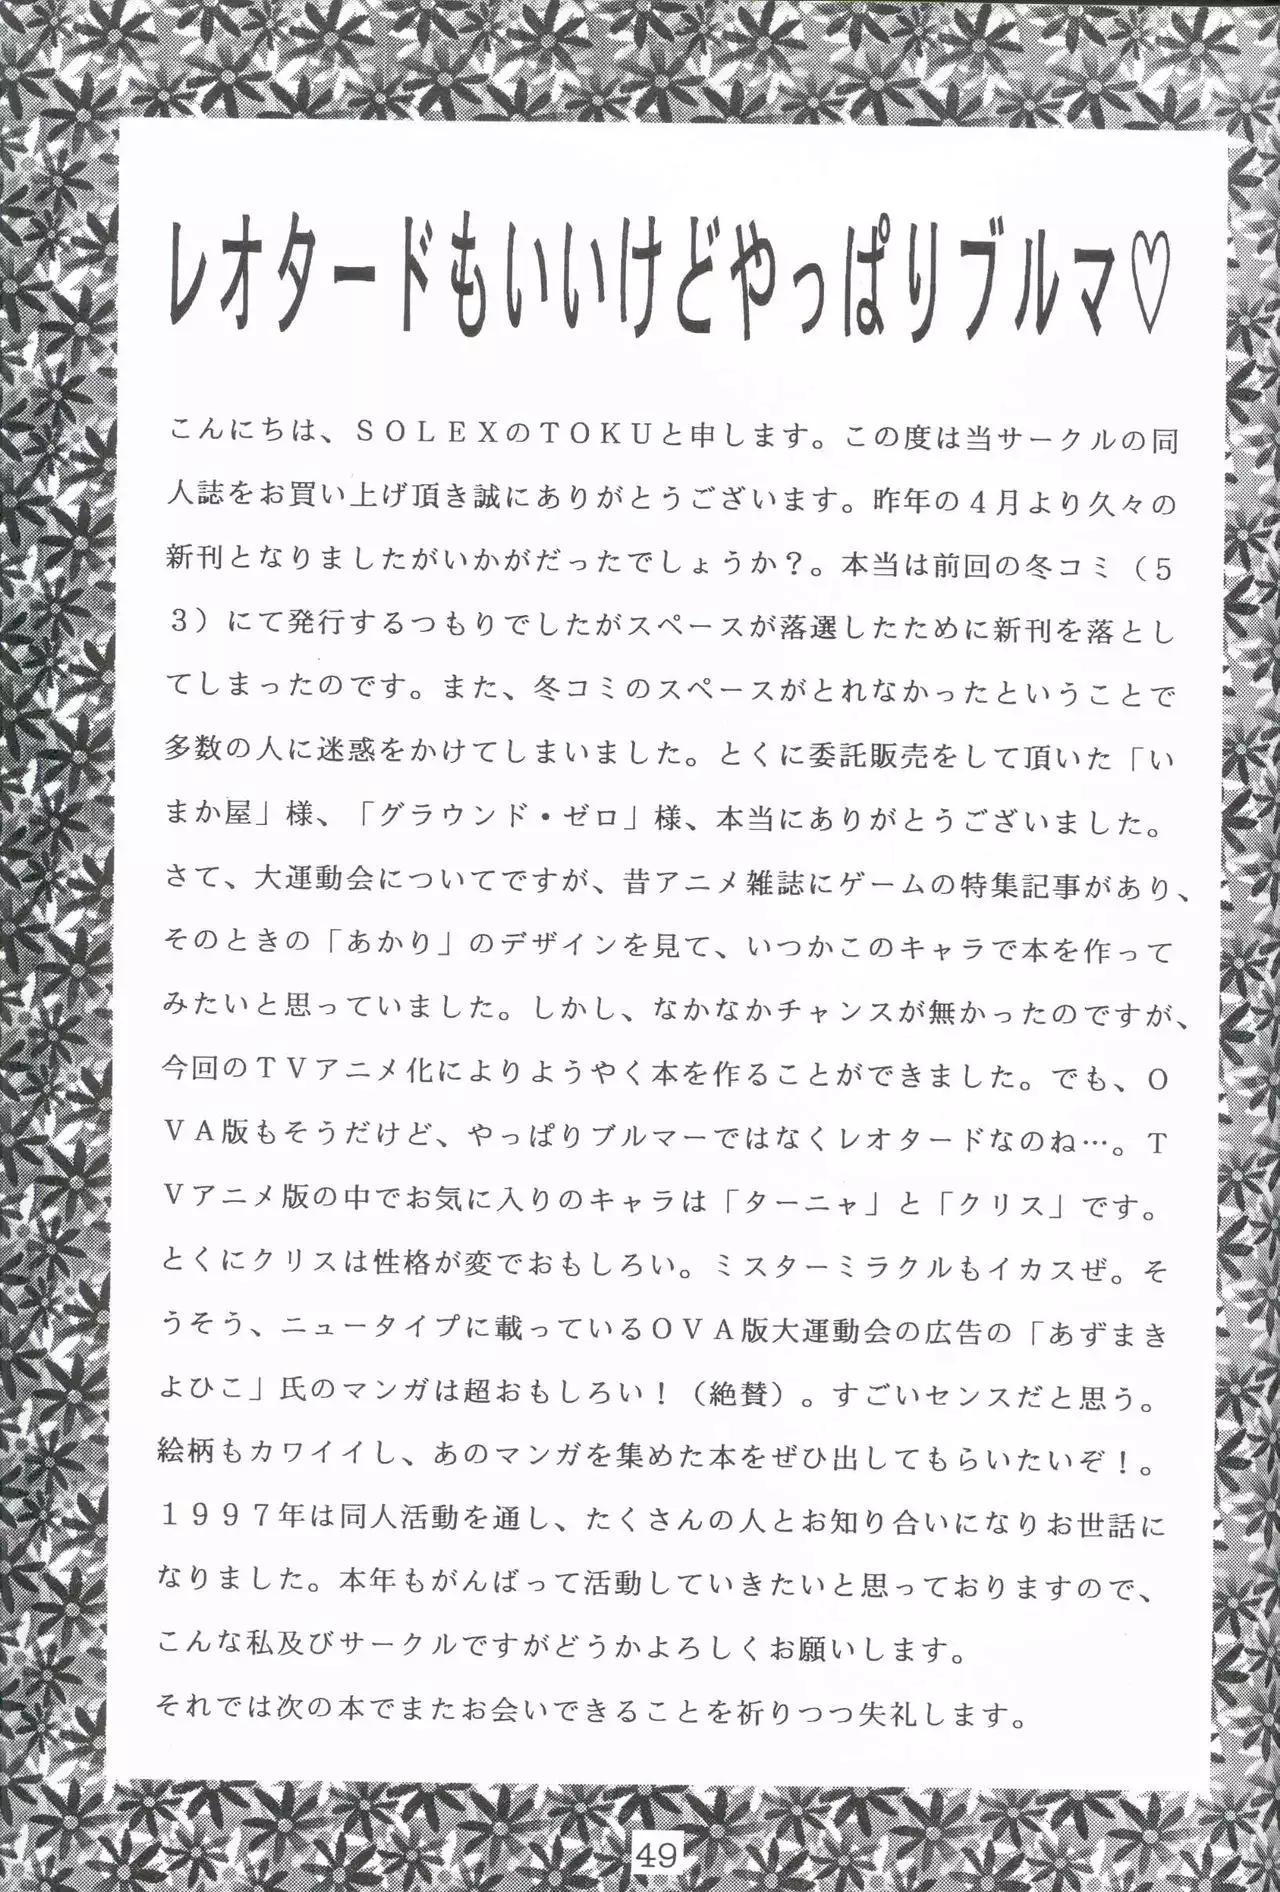 レオタードもいいけどやっぱりブルマ♡
こんにちは、ＳＯＬＥＸのＴＯＫＵと申します。この度は当サークルの同
人誌をお買い上げ頂き誠にありがとうございます。昨年の４月より久々の
新刊となりましたがいかがだったでしょうか？。本当は前回の冬コミ（５
３）にて発行するつもりでしたがスペースが落選したために新刊を落とし
てしまったのです。また、冬コミのスペースがとれなかったということで
多数の人に迷惑をかけてしまいました。とくに委託販売をして頂いた「い
まか屋」様、「グラウンド・ゼロ」様、本当にありがとうございました。
さて、大運動会についてですが、昔アニメ雑誌にゲームの特集記事があり、
そのときの「あかり」のデザインを見て、いつかこのキャラで本を作って
みたいと思っていました。しかし、なかなかチャンスが無かったのですが、
今回のＴＶアニメ化によりようやく本を作ることができました。でも、Ｏ
ＶＡ版もそうだけど、やっぱりブルマーではなくレオタードなのね…。Ｔ
Ｖアニメ版の中でお気に入りのキャラは「ターニャ」と「クリス」です。
とくにクリスは性格が変でおもしろい。ミスターミラクルもイカスぜ。そ
うそう、ニュータイプに載っているＯＶＡ版大運動会の広告の「あずまき
よひこ」氏のマンガは超おもしろい！（絶賛）。すごいセンスだと思う。
絵柄もカワイイし、あのマンガを集めた本をぜひ出してもらいたいぞ！。
１９９７年は同人活動を通し、たくさんの人とお知り合いになりお世話に
なりました。本年もがんばって活動していきたいと思っておりますので、
こんな私及びサークルですがどうかよろしくお願いします。
それでは次の本でまたお会いできることを祈りつつ失礼します。
49